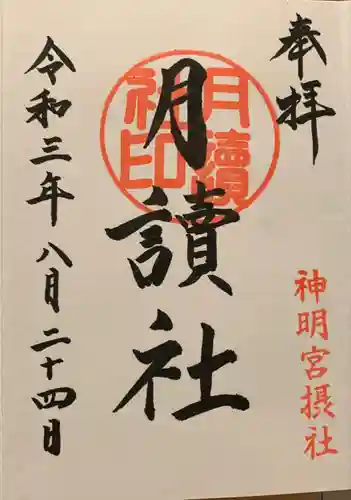 奉拝
神明宮摂社
月讀社
月讀社印
令和三年八月二十四日